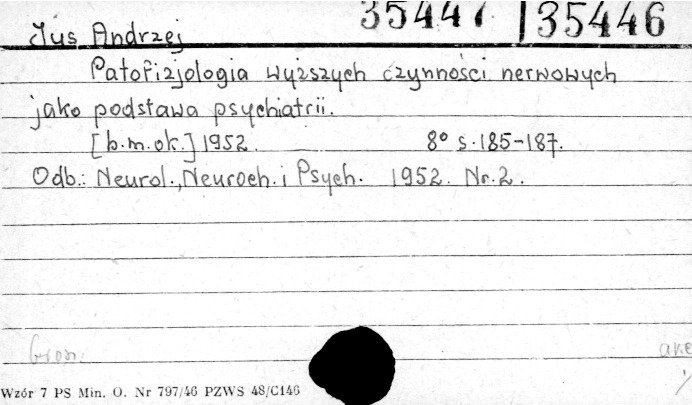 35447 | 35446
Jus Andrzej
Patofizjologia wyższych czynności nerwowych
jako podstawa psychiatrii.
[b.m.ok.] 1952. 8° s. 185-187.
Odb.: Neurol., Neuroch. i Psych. 1952. Nr. 2.
akc
Wzór 7 PS Min. O. Nr 797/46 PZWS 48/C146